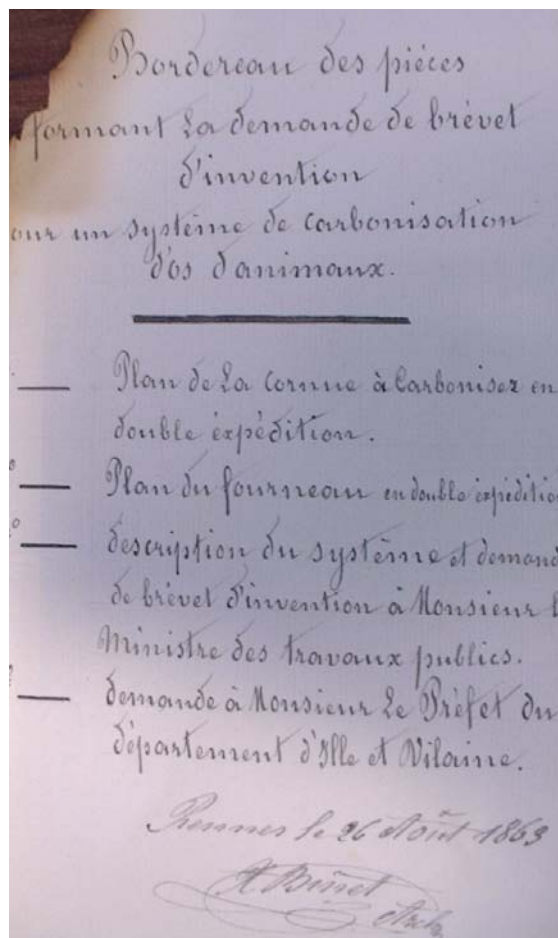 Bordereau des pièces
formant La demande de brévet
d'invention
our un système de carbonisation
d'os d'animaux.
Plan de La Cornue à Carbonisez en
double éxpédition.
º — Plan du fourneau en double éxpédition
º — description du système et demand
de brévet d'invention à Monsieur l
Ministre des travaux publics.
— demande à Monsieur Le Préfet du
département d'Ille et Vilaine.
Rennes le 26 Août 1863
Binet
Arch